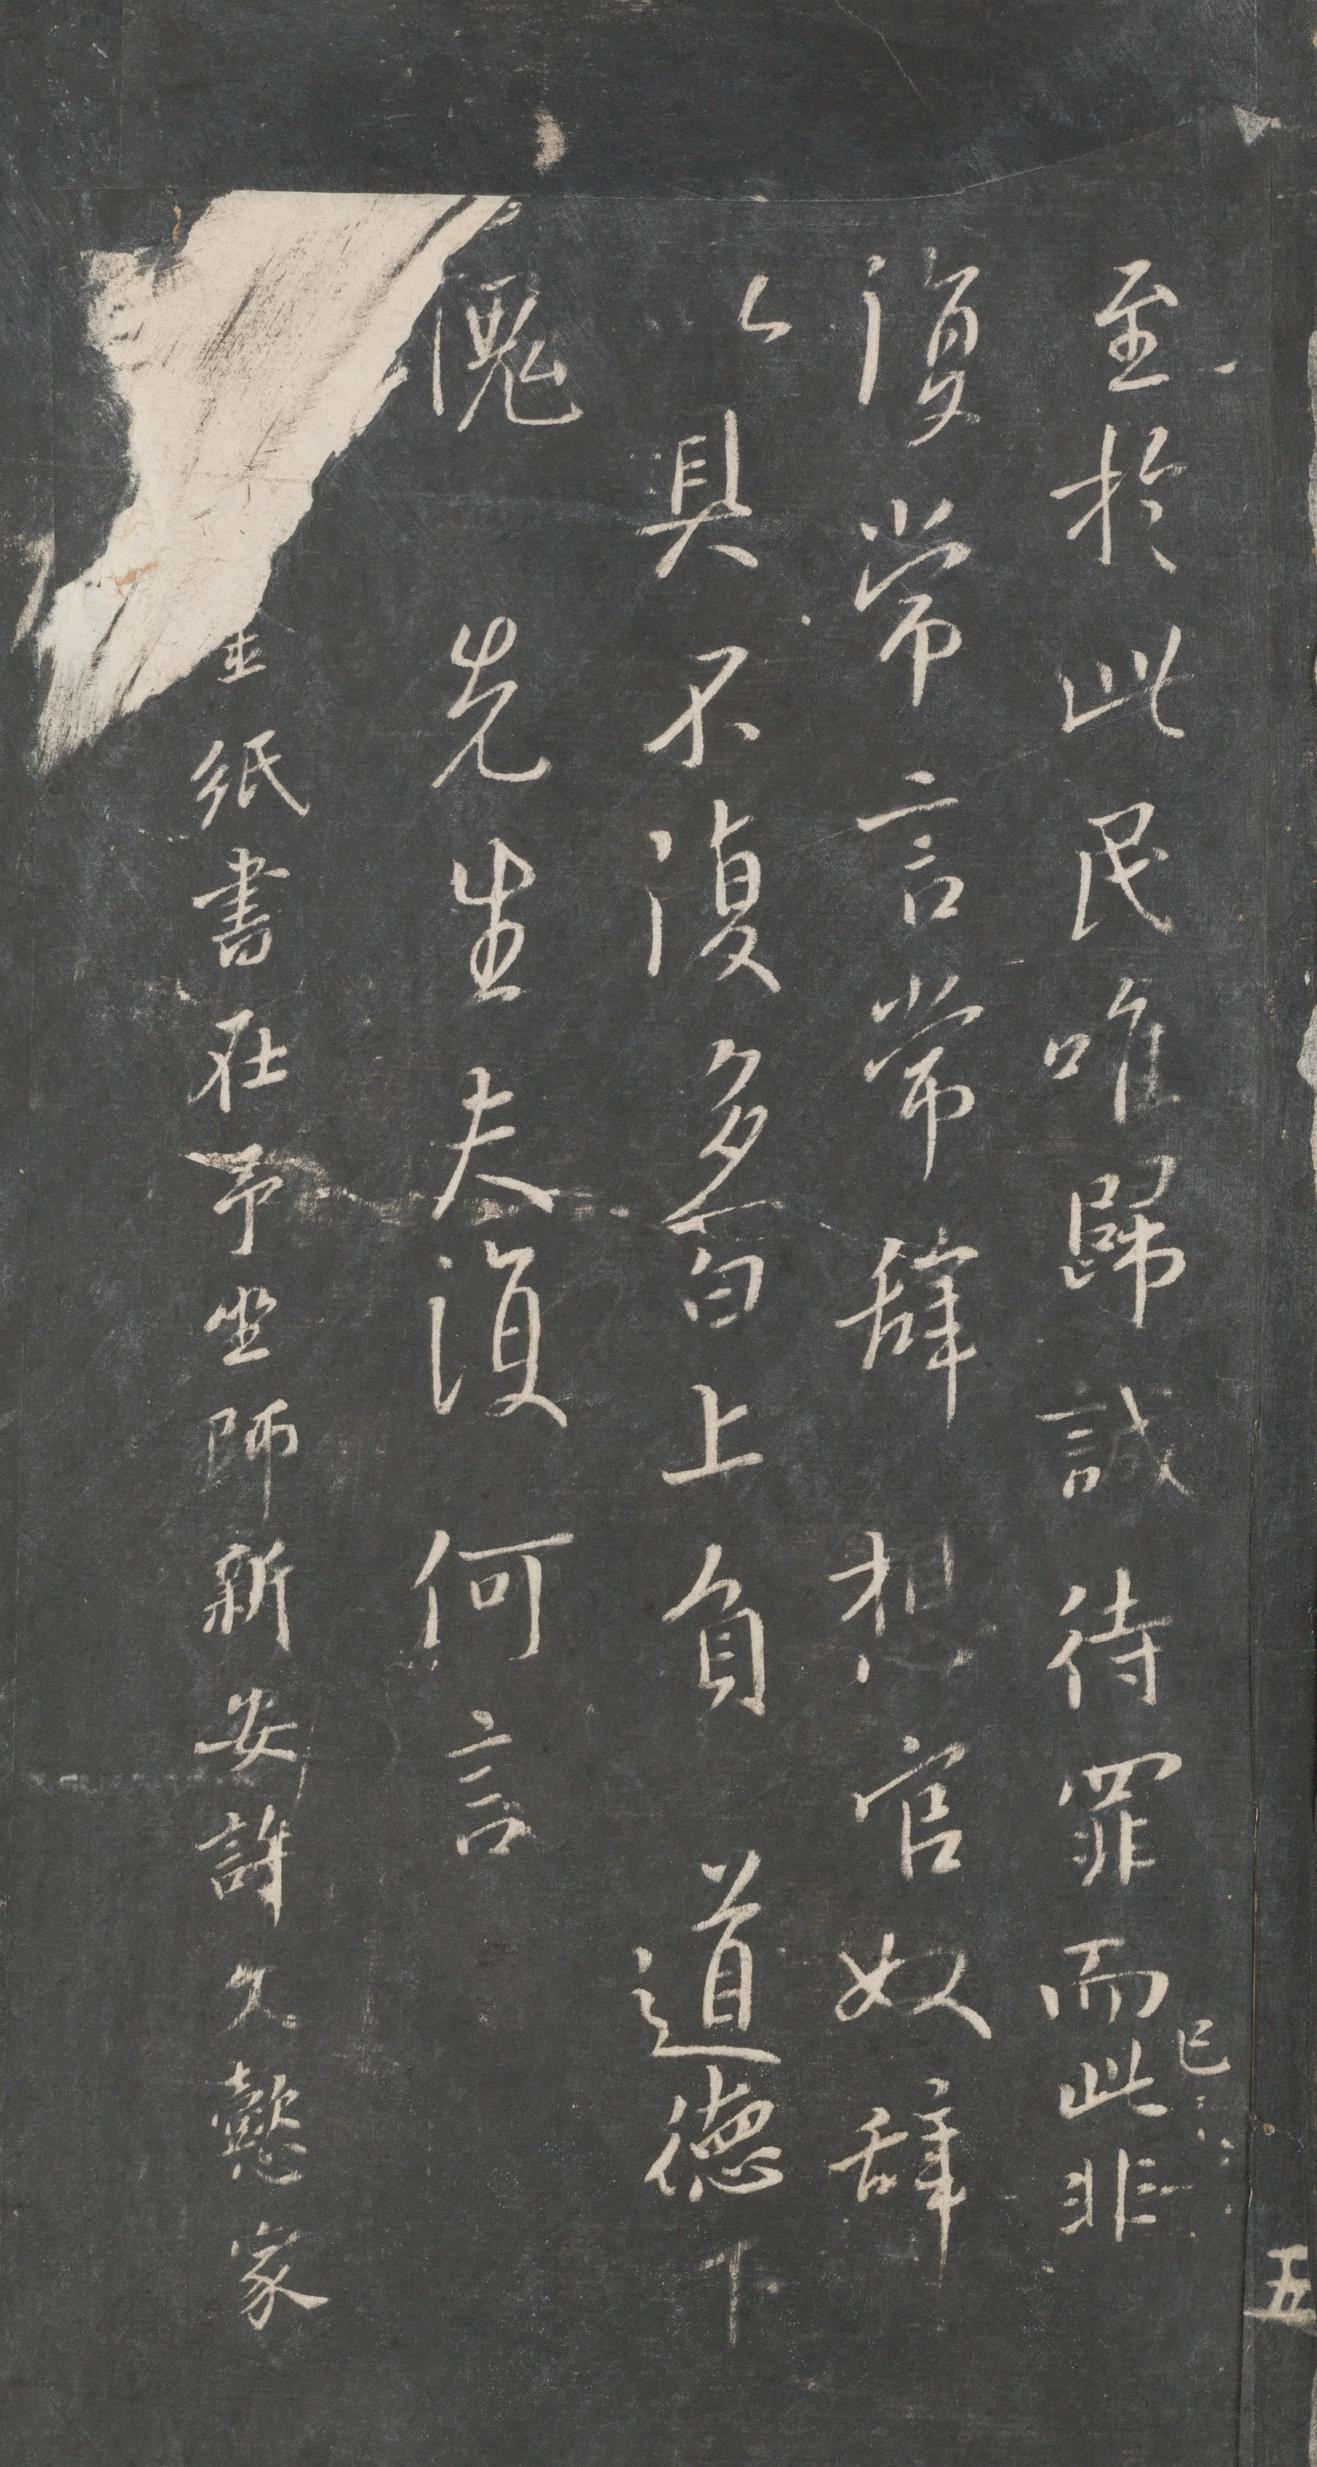 至於此民唯歸誠待罪而此非
已
復常言常辭想官奴辭
以具不復多白上負道德下
愧先生夫復何言
紙書在予坐師新安許文懿家
五